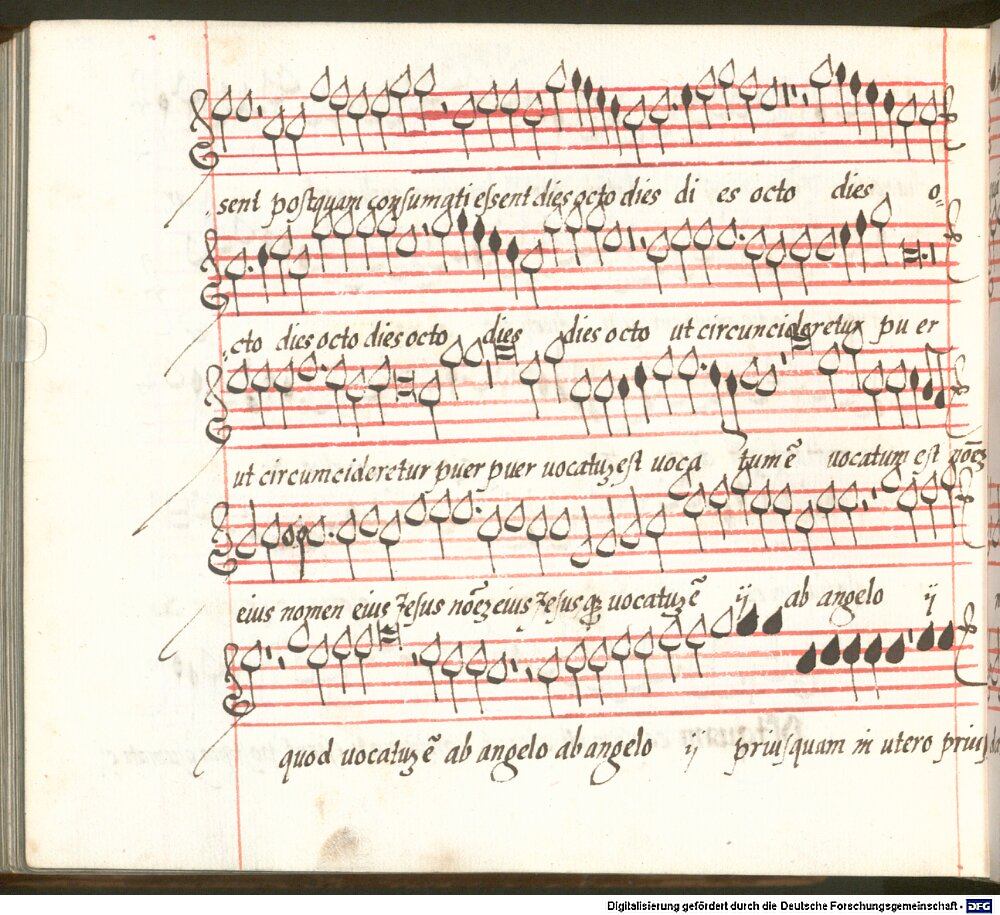 sent postquam consumati essent dies octo dies di es octo dies o-
cto dies octo dies octo dies dies octo ut circuncideretur pu er
ut circumcideretur puer puer uocatuʒ est uoca tum ē uocatum est nōēʒ
eius nomen eius Jesus nōēʒ eius Jesus uocatuʒ ē ij ab angelo ij
quod uocatuʒ ē ab angelo ab angelo ij priusquam in utero prius
Digitalisierung gefördert durch die Deutsche Forschungsgemeinschaft - DFG